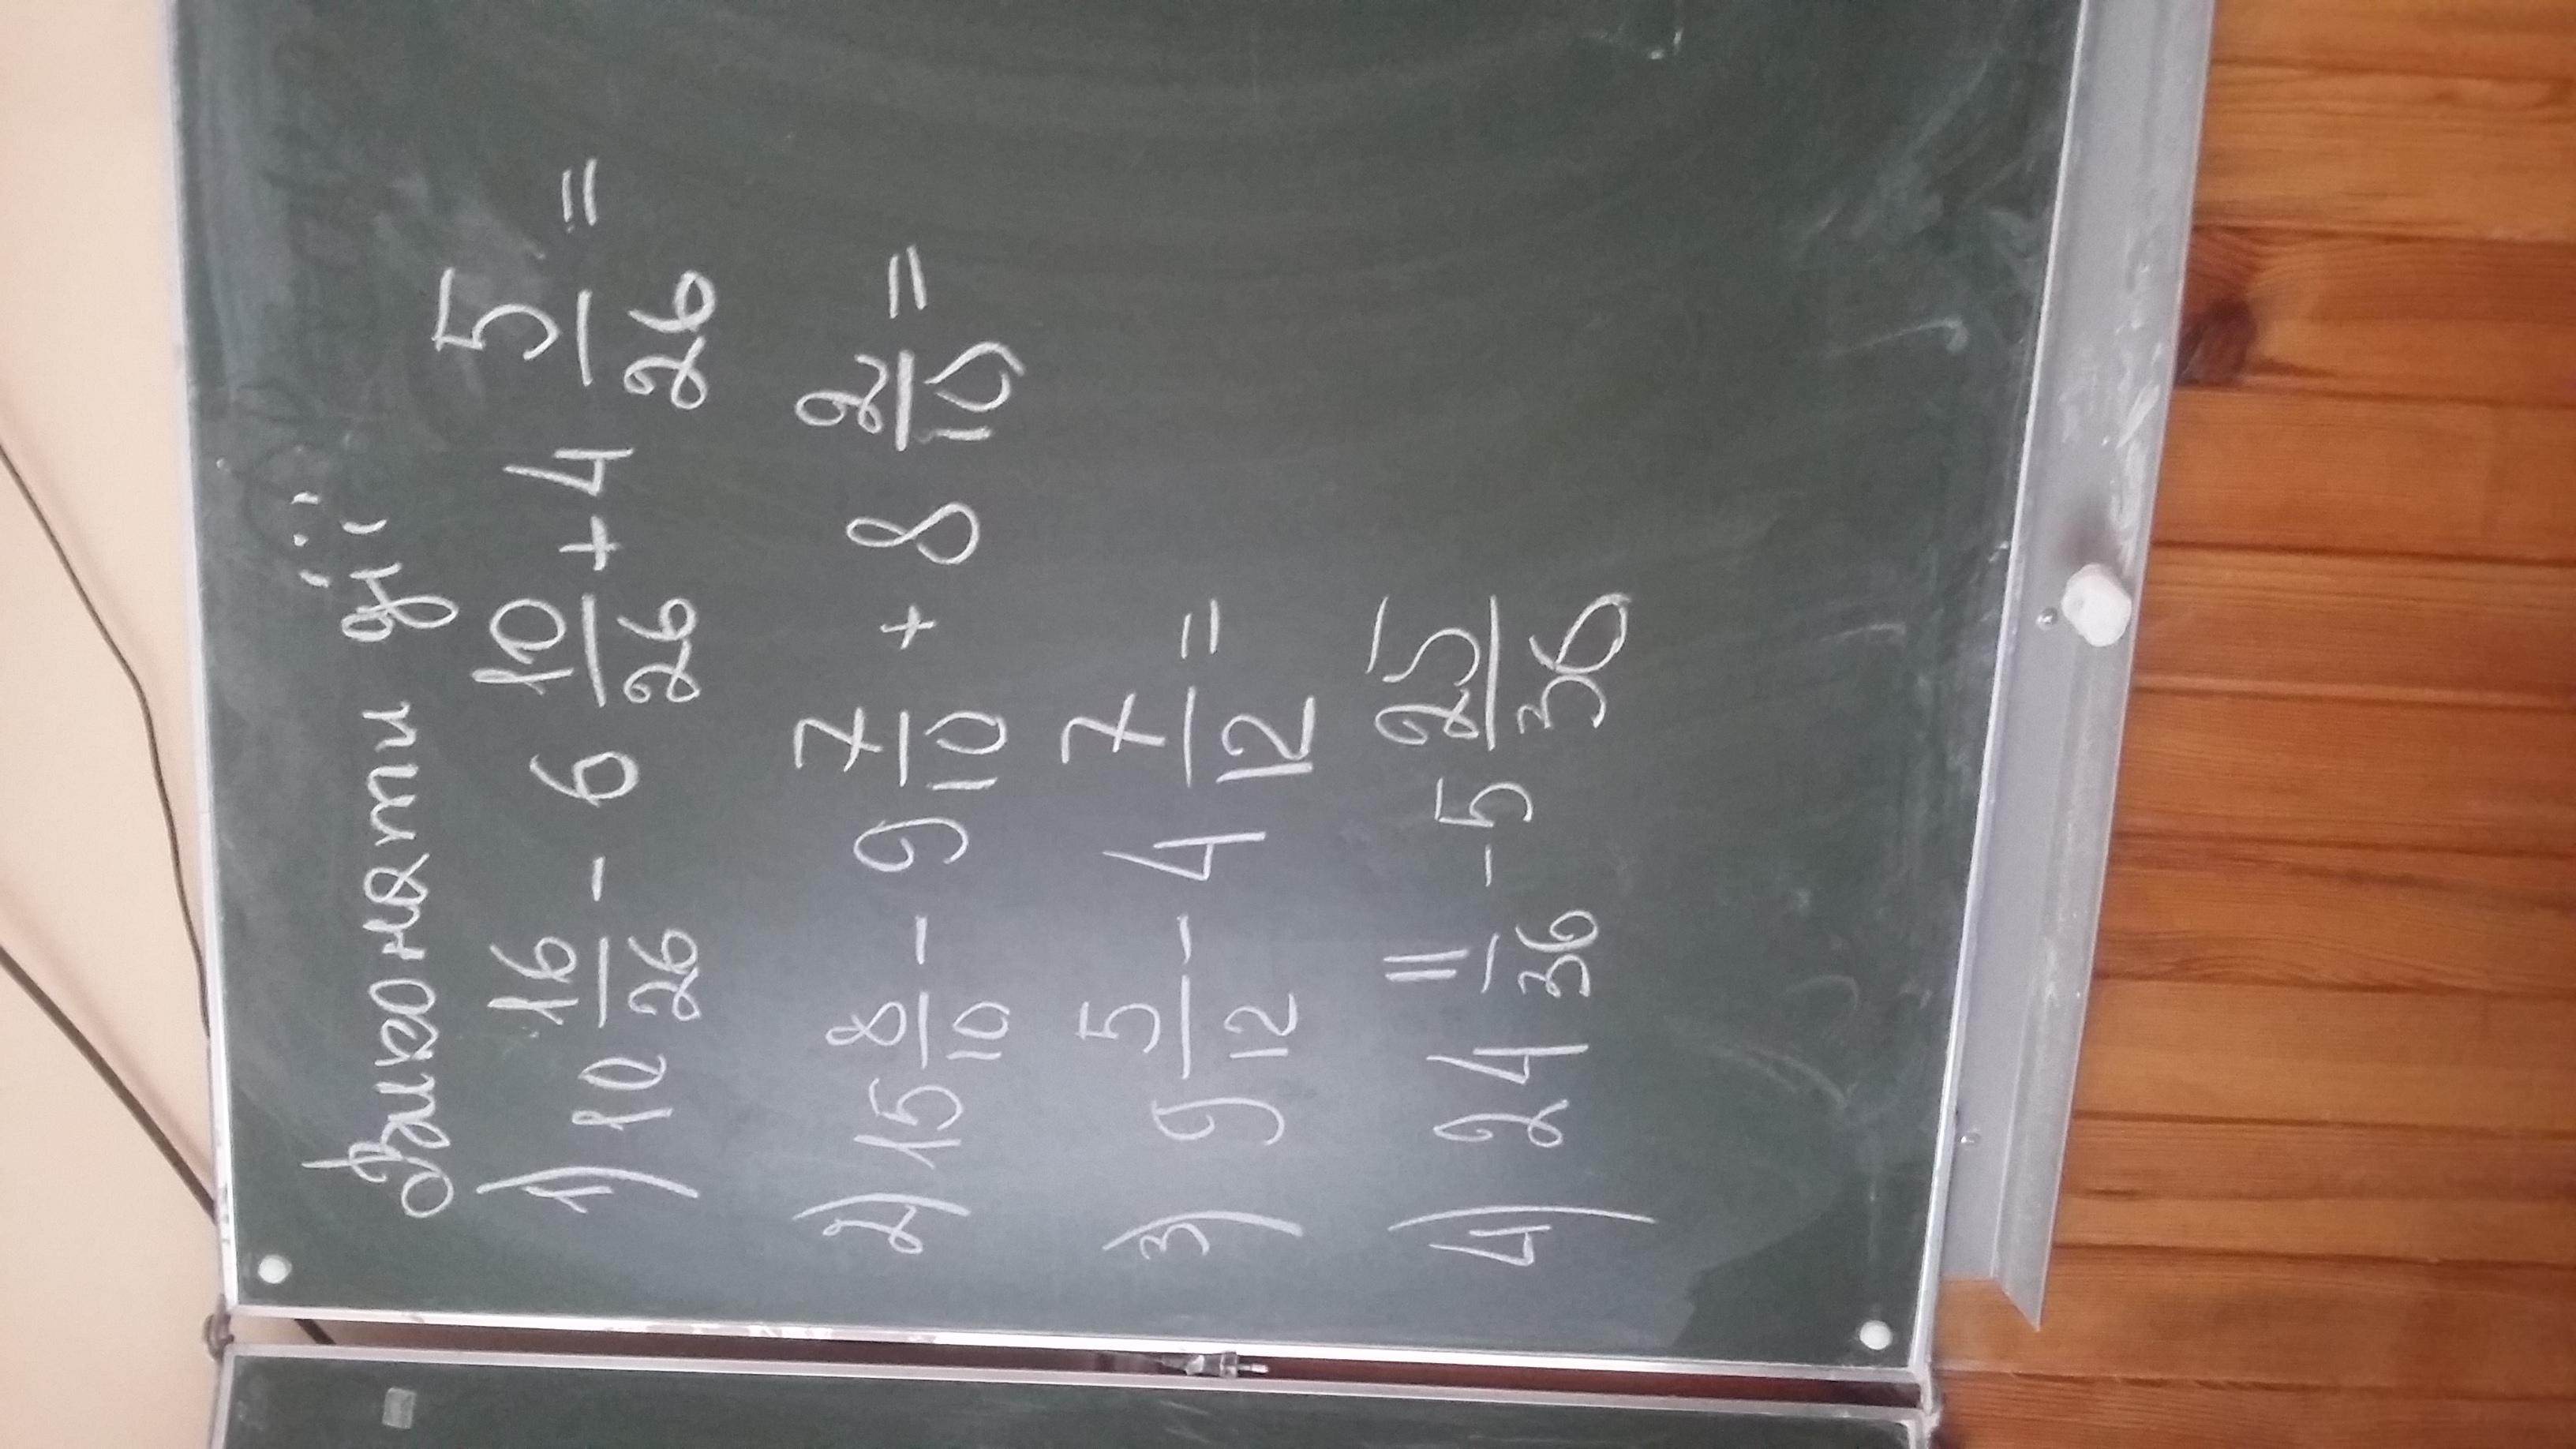 Виконати дії
1) 10 16/26 - 6 10/26 + 4 5/26 =
2) 15 8/10 - 9 7/10 + 8 2/10 =
3) 9 5/12 - 4 7/12 =
4) 24 11/36 - 5 25/36